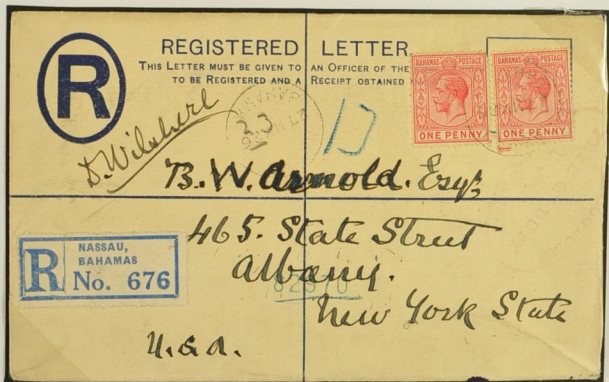 REGISTERED LETTER
THIS LETTER MUST BE GIVEN TO AN OFFICER OF THE
TO BE REGISTERED AND A RECEIPT OBTAINED
R
BAHAMAS POSTAGE
ONE PENNY
BAHAMAS POSTAGE
ONE PENNY
D. Wilshere
B. W. Arnold. Esqr
465. State Street
Albany.
New York State
U.S.A.
R
NASSAU,
BAHAMAS
No. 676